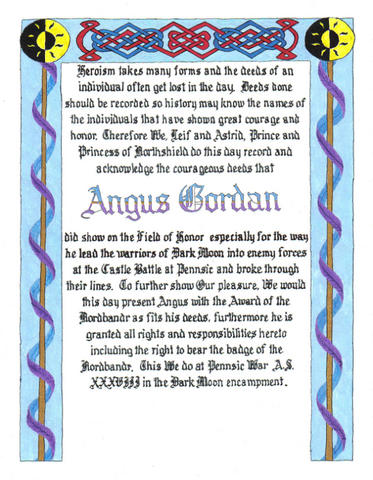 Heroism takes many forms and the deeds of an
individual often get lost in the day. Deeds done
should be recorded so history may know the names of
the individuals that have shown great courage and
honor. Therefore We, Leif and Astrid, Prince and
Princess of Northshield do this day record and
acknowledge the courageous deeds that
Angus Gordan
did show on the Field of Honor especially for the way
he lead the warriors of Dark Moon into enemy forces
at the Castle Battle at Pennsic and broke through
their lines. To further show Our pleasure, We would
this day present Angus with the Award of the
Nordbandr as fits his deeds, furthermore he is
granted all rights and responsibilities hereto
including the right to bear the badge of the
Nordbandr. This We do at Pennsic War A.S.
XXXVIII in the Dark Moon encampment.